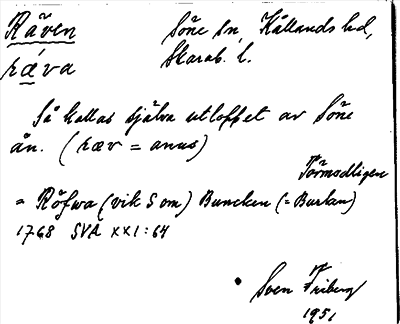 Räven Söne sn, Kållands hd,
ræva Skarab. l.
Så kallas själva utloppet av Söne
ån. (ræv = anus)
Förmodligen
= Röfwa (vik S om) Buncken (= Burkan)
1768 SVA XXI:64
Sven Friberg
1951